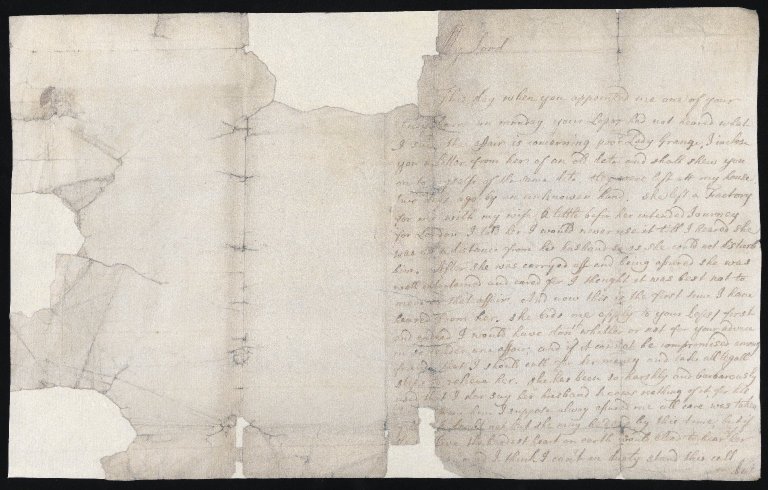 My Lord
This day when you appointed me one of your
on monday your Lo/ps had not heard what
I the affair is concerning poor Lady Grange, I inclose
you a letter from her of an old date and shall shew you
of the same date they were left at my house
days ago by an unknowen hand. she left a Factory
for me with my wife a little before her intended Journey
for London I told her I would never use it till I heared she
was at a distance from her husband so as she could not disturb
him. After she was carryed off and being assured she was
well entertained and cared for I thought it was best not to
move in that affair. And now this is the first time I have
heared from her. she bids me apply to your Lo/ps first
and I would have don whether or not for your advice
in affair, and if it can not be compromised among
that I should call for her money and take all legall
steps to relieve her. she has been so harshly and barbarously
used that I dar say her husband knows nothing of it for his
I suppose alway assured me all care was taken
not but she may be dead by this time, but if
the hardest heart on earth would bleed to hear her
and I think I cant in duty stand this call